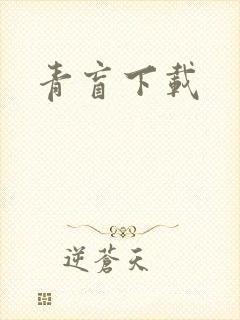 青盲下載
逆蒼天